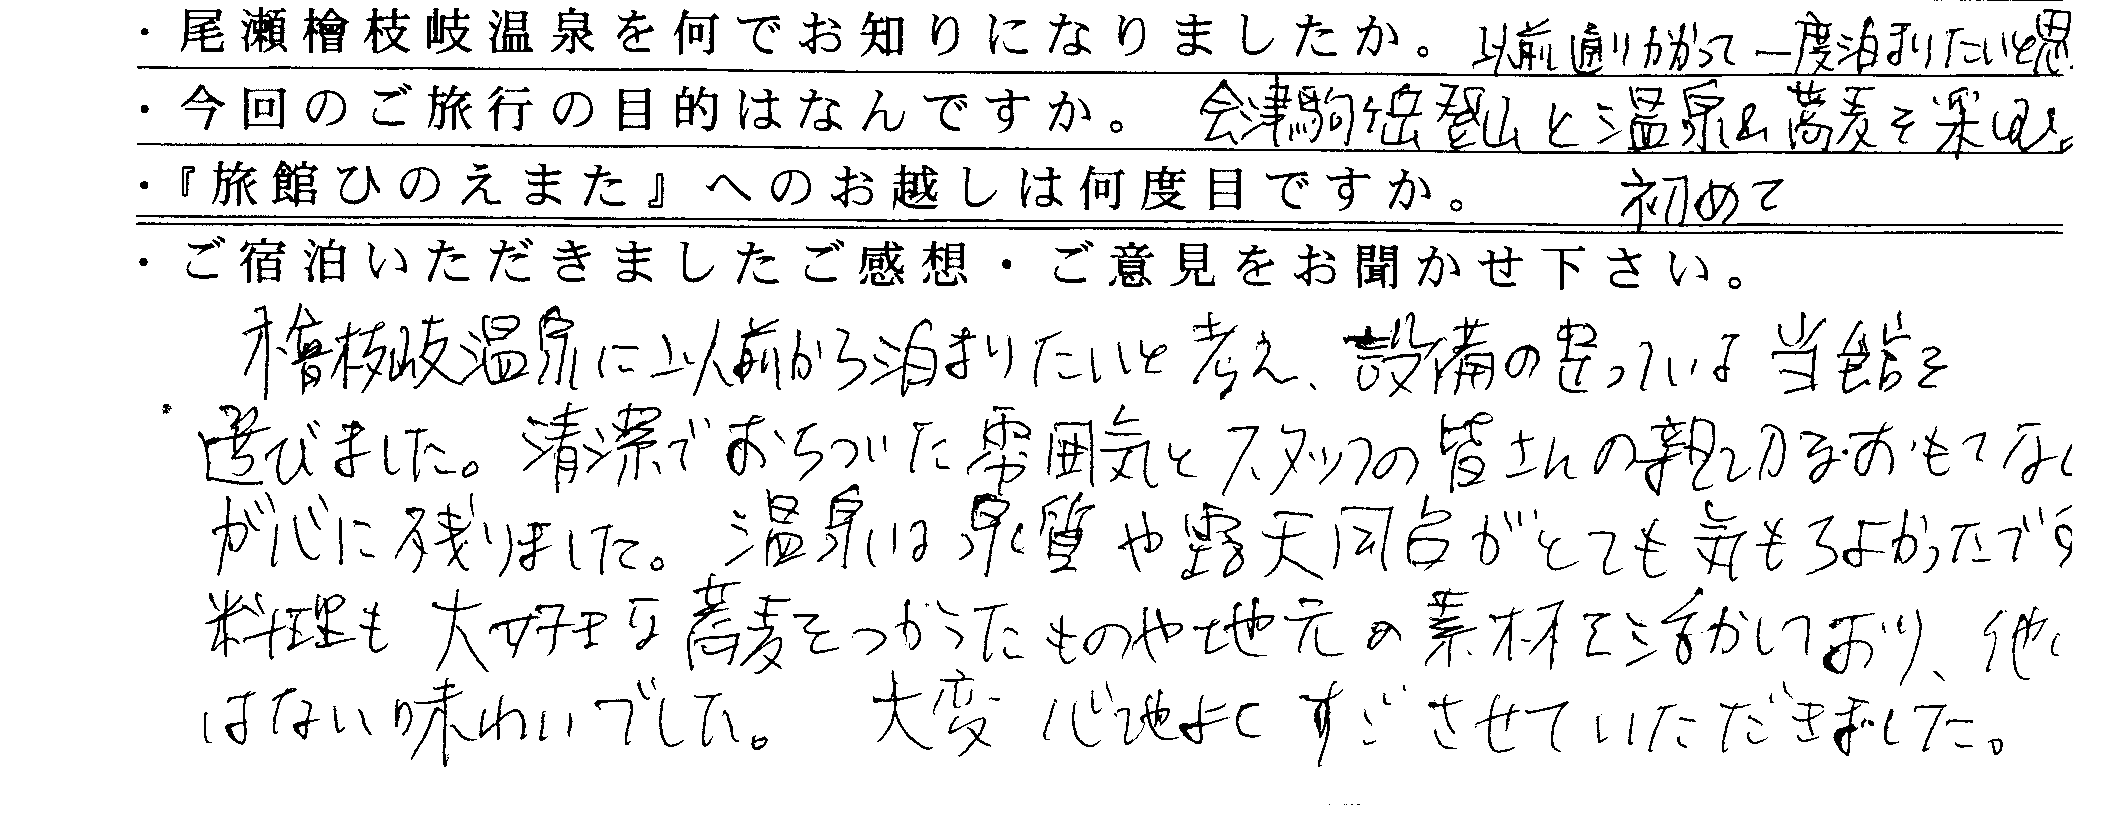 ・尾瀬檜枝岐温泉を何でお知りになりましたか。 以前通りかかって一度泊まりたいと思
・今回のご旅行の目的はなんですか。 会津駒ヶ岳登山と温泉&蕎麦を楽しむ。
・『旅館ひのえまた』へのお越しは何度目ですか。 初めて
・ご宿泊いただきましたご感想・ご意見をお聞かせ下さい。
檜枝岐温泉に以前から泊まりたいと考え、設備の整っている当館を
選びました。清潔でおちついた雰囲気とスタッフの皆さんの親切なおもてなし
が心に残りました。温泉は泉質や露天風呂がとても気もちよかったです
料理も大好きな蕎麦をつかったものや地元の素材を活かしており、他に
はない味わいでした。 大変心地よくすごさせていただきました。